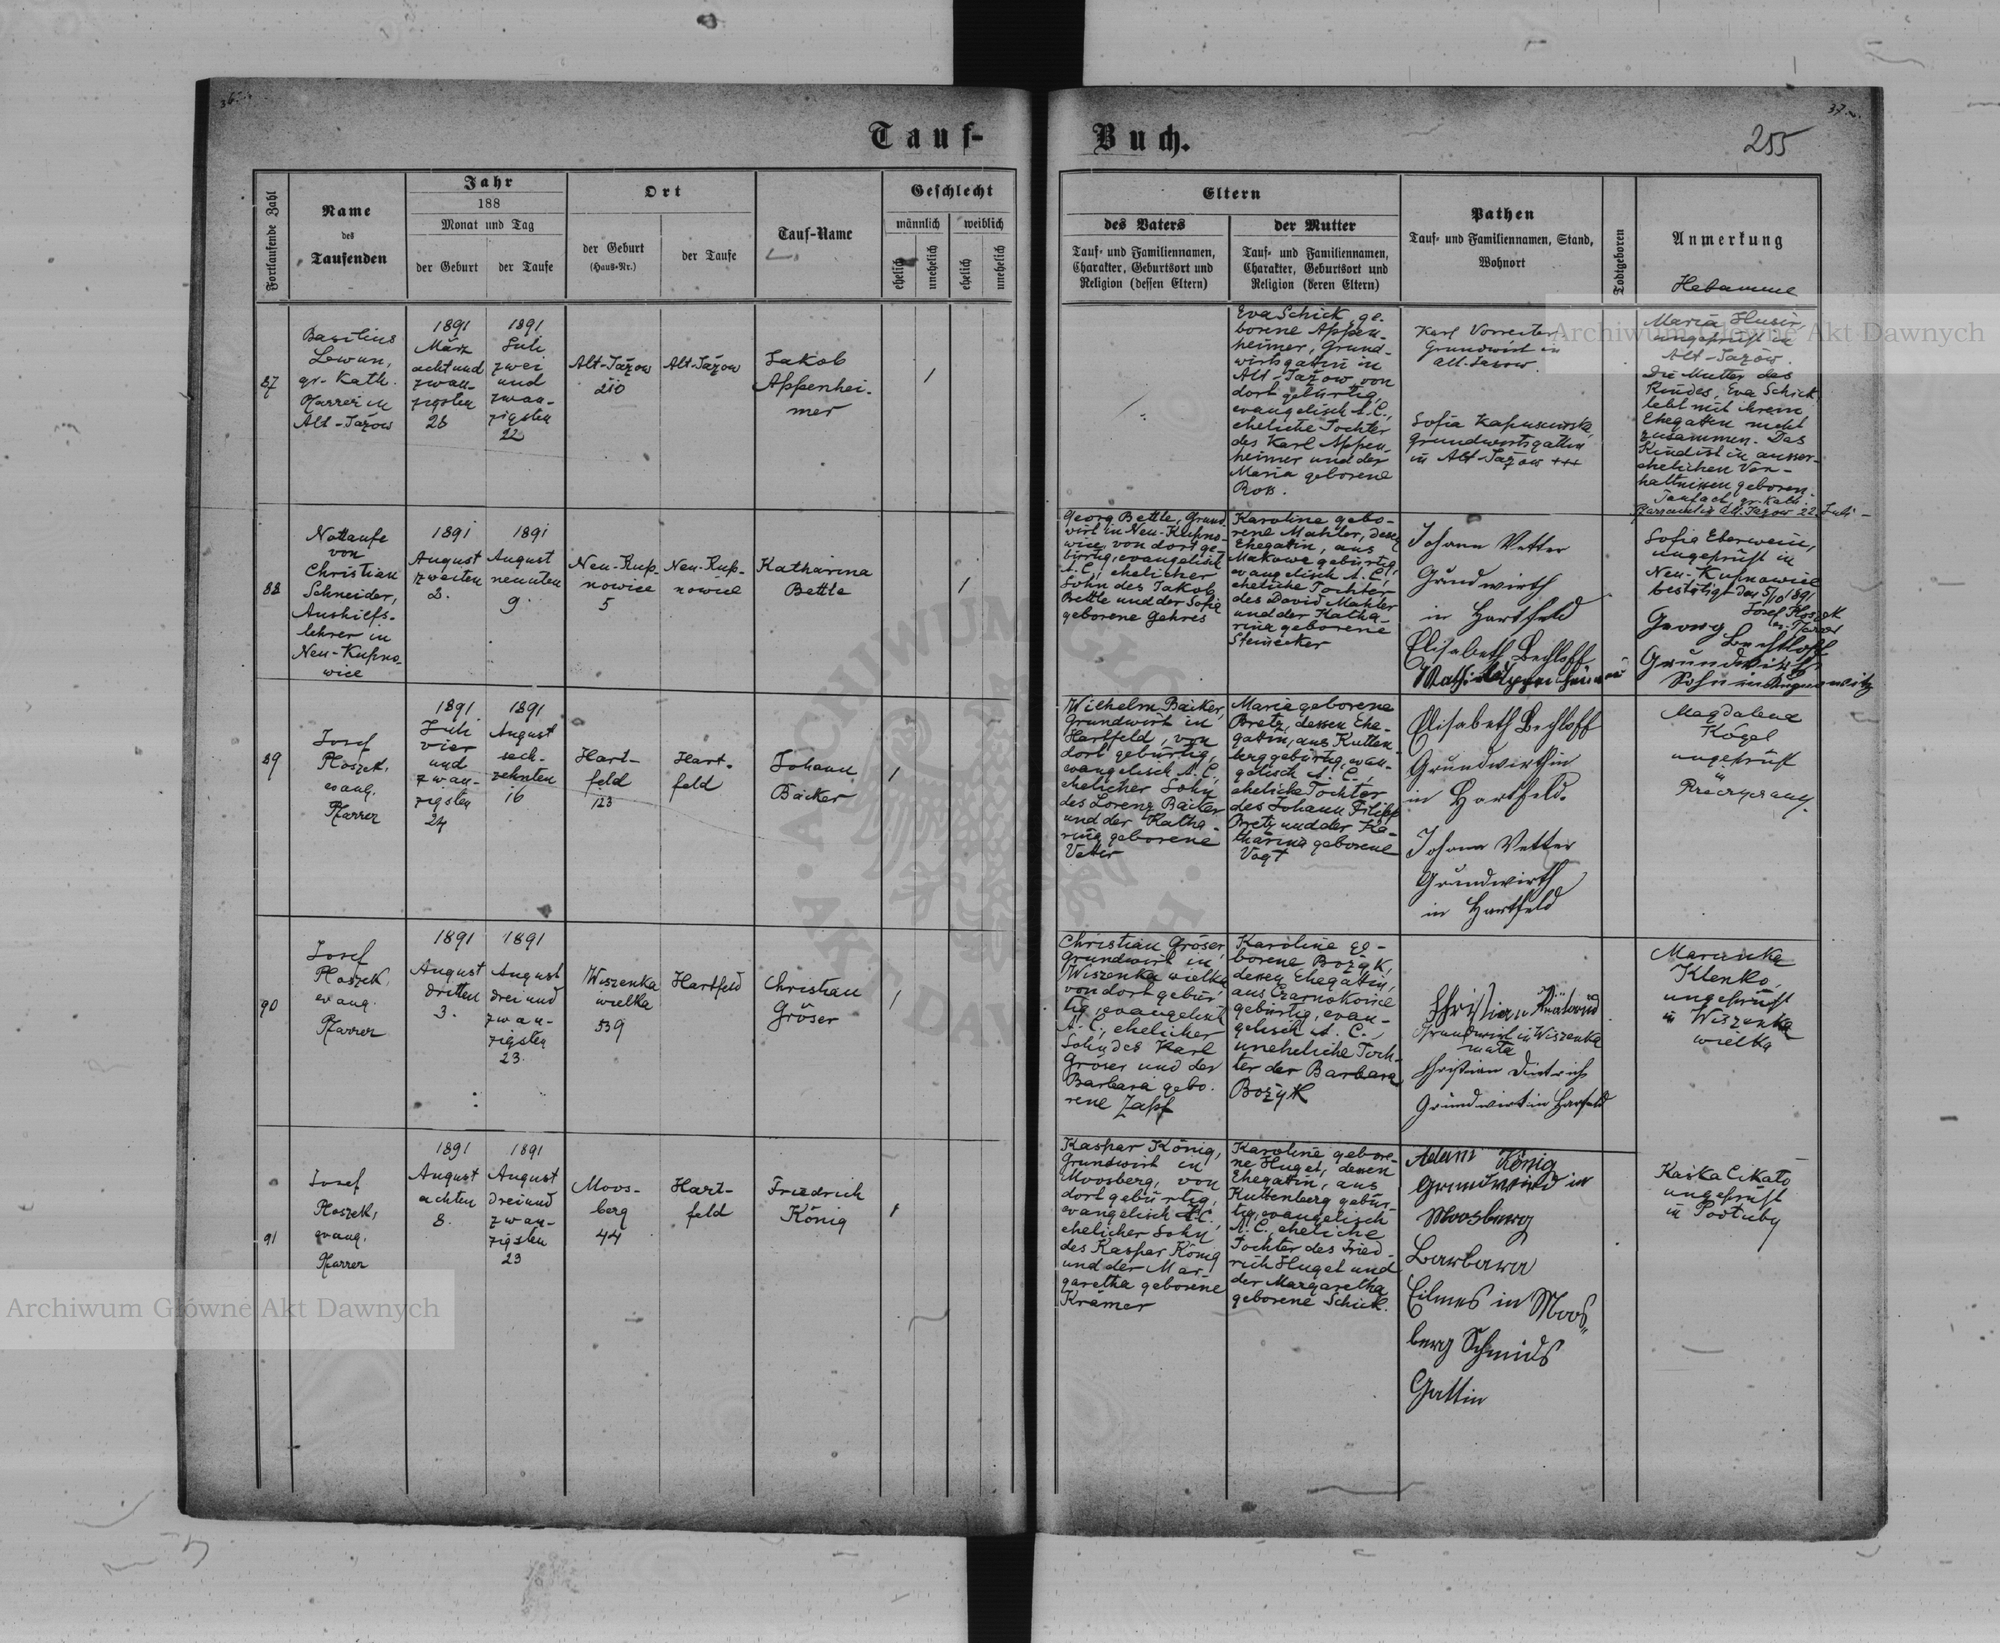 36
37
255
Tauf-
Buch.
Fortlaufende Zahl
Name
des
Taufenden
Jahr
188
Monat und Tag
der Geburt
der Taufe
Ort
der Geburt
(Haus-Nr.)
der Taufe
Tauf-Name
Geschlecht
männlich
weiblich
ehelich
unehelich
ehelich
unehelich
Eltern
des Vaters
Tauf- und Familiennamen,
Charakter, Geburtsort und
Religion (dessen Eltern)
der Mutter
Tauf- und Familiennamen,
Charakter, Geburtsort und
Religion (deren Eltern)
Pathen
Tauf- und Familiennamen, Stand,
Wohnort
Todtgeboren
Anmerkung
Hebamme
87
Basilius
Lewun,
gr. Kath.
Pfarrer in
Alt-Jażow
1891
März
acht und
zwan-
zigsten
28
1891
Juli
zwei
und
zwan-
zigsten
22
Alt-Jażow
210
Alt-Jażow
Jakob
Appenhei-
mer
1
Eva Schick, ge-
borene Appen-
heimer, Grund-
wirtsgattin in
Alt-Jażow, von
dort gebürtig,
evangelisch A.C.,
eheliche Tochter
des Karl Appen-
heimer und der
Maria geborene
Ross.
Karl Vorreiter
Grundwirt in
Alt-Jazow.
Sofia
Grundwirtsgattin
in Alt-Jażow +++
Maria Husir,
ungeprüft in
Alt-Jażow.
Die Mutter des
Kindes, Eva Schick
lebt mit ihrem
Ehegatten nicht
zusammen. Das
Kind ist in ausser-
ehelichen Ver-
hältnissen geboren.
gr. Kath.
Alt Jażow 22. Juli
88
Nottaufe
von
Christian
Schneider,
Aushilfs-
lehrer in
Neu-Kupno-
wice
1891
August
zweiten
2.
1891
August
neunten
9.
Neu-Kup-
nowice
5
Neu-Kup-
nowice
Katharina
Bettle
1
Georg Bettle, Grund-
wirt in Neu-Kupno-
wice, von dort ge-
bürtig, evangelisch
A.C., ehelicher
Sohn des Jakob
Bettle und der Sofia
geborene Gehres
Karoline gebo-
rene Mahler, dessen
Ehegattin, aus
Makowe gebürtig,
evangelisch A.C.,
eheliche Tochter
des David Mahler
und der Katha-
rina geborene
Steinecker
Johann Vetter
Grundwirth
in Hartfeld
Elisabeth Bechloff
Sofia Eberwein,
ungeprüft in
Neu-Kupnowice
bestätigt den 5/10 1891
Josef Ploszek
ev. Pfarrer
Georg Bechtloff
Grundwirths
Sohn in
89
Josef
Ploszek,
evang.
Pfarrer
1891
Juli
vier
und
zwan-
zigsten
24
1891
August
sech-
zehnten
16
Hart-
feld
123
Hart-
feld
Johann
Bäcker
1
Wilhelm Bäcker,
Grundwirt in
Hartfeld, von
dort gebürtig,
evangelisch A.C.,
ehelicher Sohn
des Lorenz Bäcker
und der Katha-
rina geborene
Vetter
Maria geborene
Bretz, dessen Ehe-
gattin, aus Kutten-
berg gebürtig, evan-
gelisch A.C.,
eheliche Tochter
des Johann Filipp
Bretz und der Ka-
tharina geborene
Vogt
Elisabeth Bechloff
Grundwirthin
in Hartfeld.
Johann Vetter
Grundwirth
in Hartfeld
Magdalena
Kogel
ungeprüft
in
90
Josef
Ploszek,
evang.
Pfarrer
1891
August
dritten
3.
1891
August
drei und
zwan-
zigsten
23.
Wiszenka
wielka
539
Hartfeld
Christian
Gröser
1
Christian Gröser,
Grundwirt in
Wiszenka wielka
von dort gebür-
tig, evangelisch
A.C., ehelicher
Sohn des Karl
Gröser und der
Barbara gebo-
rene Zapf
Karoline ge-
borene Bożyk,
dessen Ehegattin,
aus Czarnokonie
gebürtig, evan-
gelisch A.C.,
uneheliche Toch-
ter der Barbara
Bożyk
Christian
Grundwirt in Wiszenka
mała
Christian Dietrich
Grundwirt in Harfeld
Marinka
Klenko,
ungeprüft
in Wiszenka
wielka
91
Josef
Ploszek,
evang.
Pfarrer
1891
August
achten
8.
1891
August
drei und
zwan-
zigsten
23
Moos-
berg
44
Hart-
feld
Friedrich
König
1
Kaspar König,
Grundwirt in
Moosberg, von
dort gebürtig,
evangelisch A.C.,
ehelicher Sohn
des Kaspar König
und der Mar-
garetha geborene
Krämer
Karoline gebore-
ne Huget, dessen
Ehegattin, aus
Kuttenberg gebür-
tig, evangelisch
A.C. eheliche
Tochter des Fried-
rich Huget und
der Margaretha
geborene Schick.
Adam König
Grundwird in
Moosburg
Barbara
Eilmes in Moos-
berg Schmids
Gattin
Kaska Cikało
ungeprüft
in Podłuby
Archiwum Główne Akt Dawnych
Archiwum Główne Akt Dawnych
ARCHIWUM GŁÓWNE AKT DAWNYCH